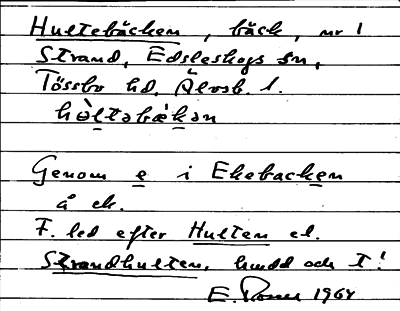 Hultebäcken, bäck, nr 1
Strand, Edsleskogs sn,
Tössbo hd, Älvsb. l.
hòltəbækən
Genom e i Ekebacken
å ck.
F. led efter Hulten el.
Strandhulten,
och T!
E. 1964